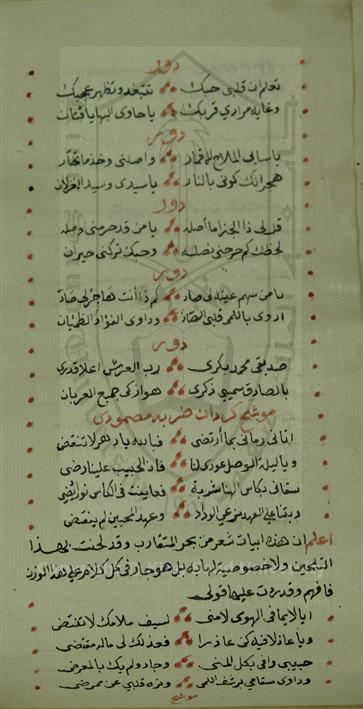 دور
تعلم ان قلبي حبك تتبغدد وتظهر عجبك
وغاية مرادي قربك يا حاوى البها يا فتان
دور
يا سابى الملاح الاقمار واصلنى وخذ ما تختار
هجرانك كوانى بالنار يا سيدى وسيد الغزلان
دور
قل لى ذا الجفا ما أصله يا من قد حرمنى وصله
لحظك كم جرحنى نصله وحبك تركنى حيران
دور
يا من سهم عينه لى صاد كم ذا أنت هاجرنى صاد
اروى باللمى قلبى الصاد وداوى الفؤاد الظميان
دور
صديقى محمد بكرى رب العرش اعلا قدرى
بالصادق سميى ذكرى هواز كى جميع العربان
موشح كردان ضربه مصمودى
اتانى زمانى بما أرتضى فبالله يا دهر لا تنقض
ويا ليلة الوصل عودى لنا فان الحبيب علينا رضى
سقانى بكاس الهنا شربة فعاينت فى الكاس نورا يضى
وبتنا على العهد نرعى الوداد وعهد المحبين لم ينقض
اعلم ان هذه ابيات شعر من بحر المتقارب وقد لحنت بهذا
التلحين ولا خصوصية لها به بل هو جار فى كل كلام على هذا الوزن
فافهم وقدرت عليها قولى
ايا لايما فى الهوى لامنى لسيف ملامك لا تنتض
ويا عاذلا فيه كن عاذرا فعذلك لى ماله مقتضى
حبيبى وافى بكل المنى وجاد ولم يك بالمعرض
وداوى سقامى برشف اللمى ونزه قلبى عن ممرضى
موشح